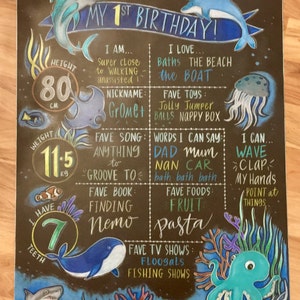 MY 1ST BIRTHDAY!
I AM...
Super close
to WALKING
unassisted!
I LOVE
Baths THE BEACH
the BOAT
HEIGHT
80
CM
NICKNAME
Gromet
FAVE TOYS
Jolly Jumper
BALLS NAPPY BOX
WEIGHT
11.5
KG
FAVE SONG
ANYTHING
to
GROOVE TO
WORDS I CAN SAY:
DAD mum
NAN CAR
bath bath bath
I CAN...
WAVE
CLAP
My Hands
POINT at
THINGS
I HAVE
7
TEETH
FAVE BOOK
FINDING
Nemo
FAVE FOODS
FRUIT
pasta
FAVE TV SHOWS
Floogals
FISHING SHOWS